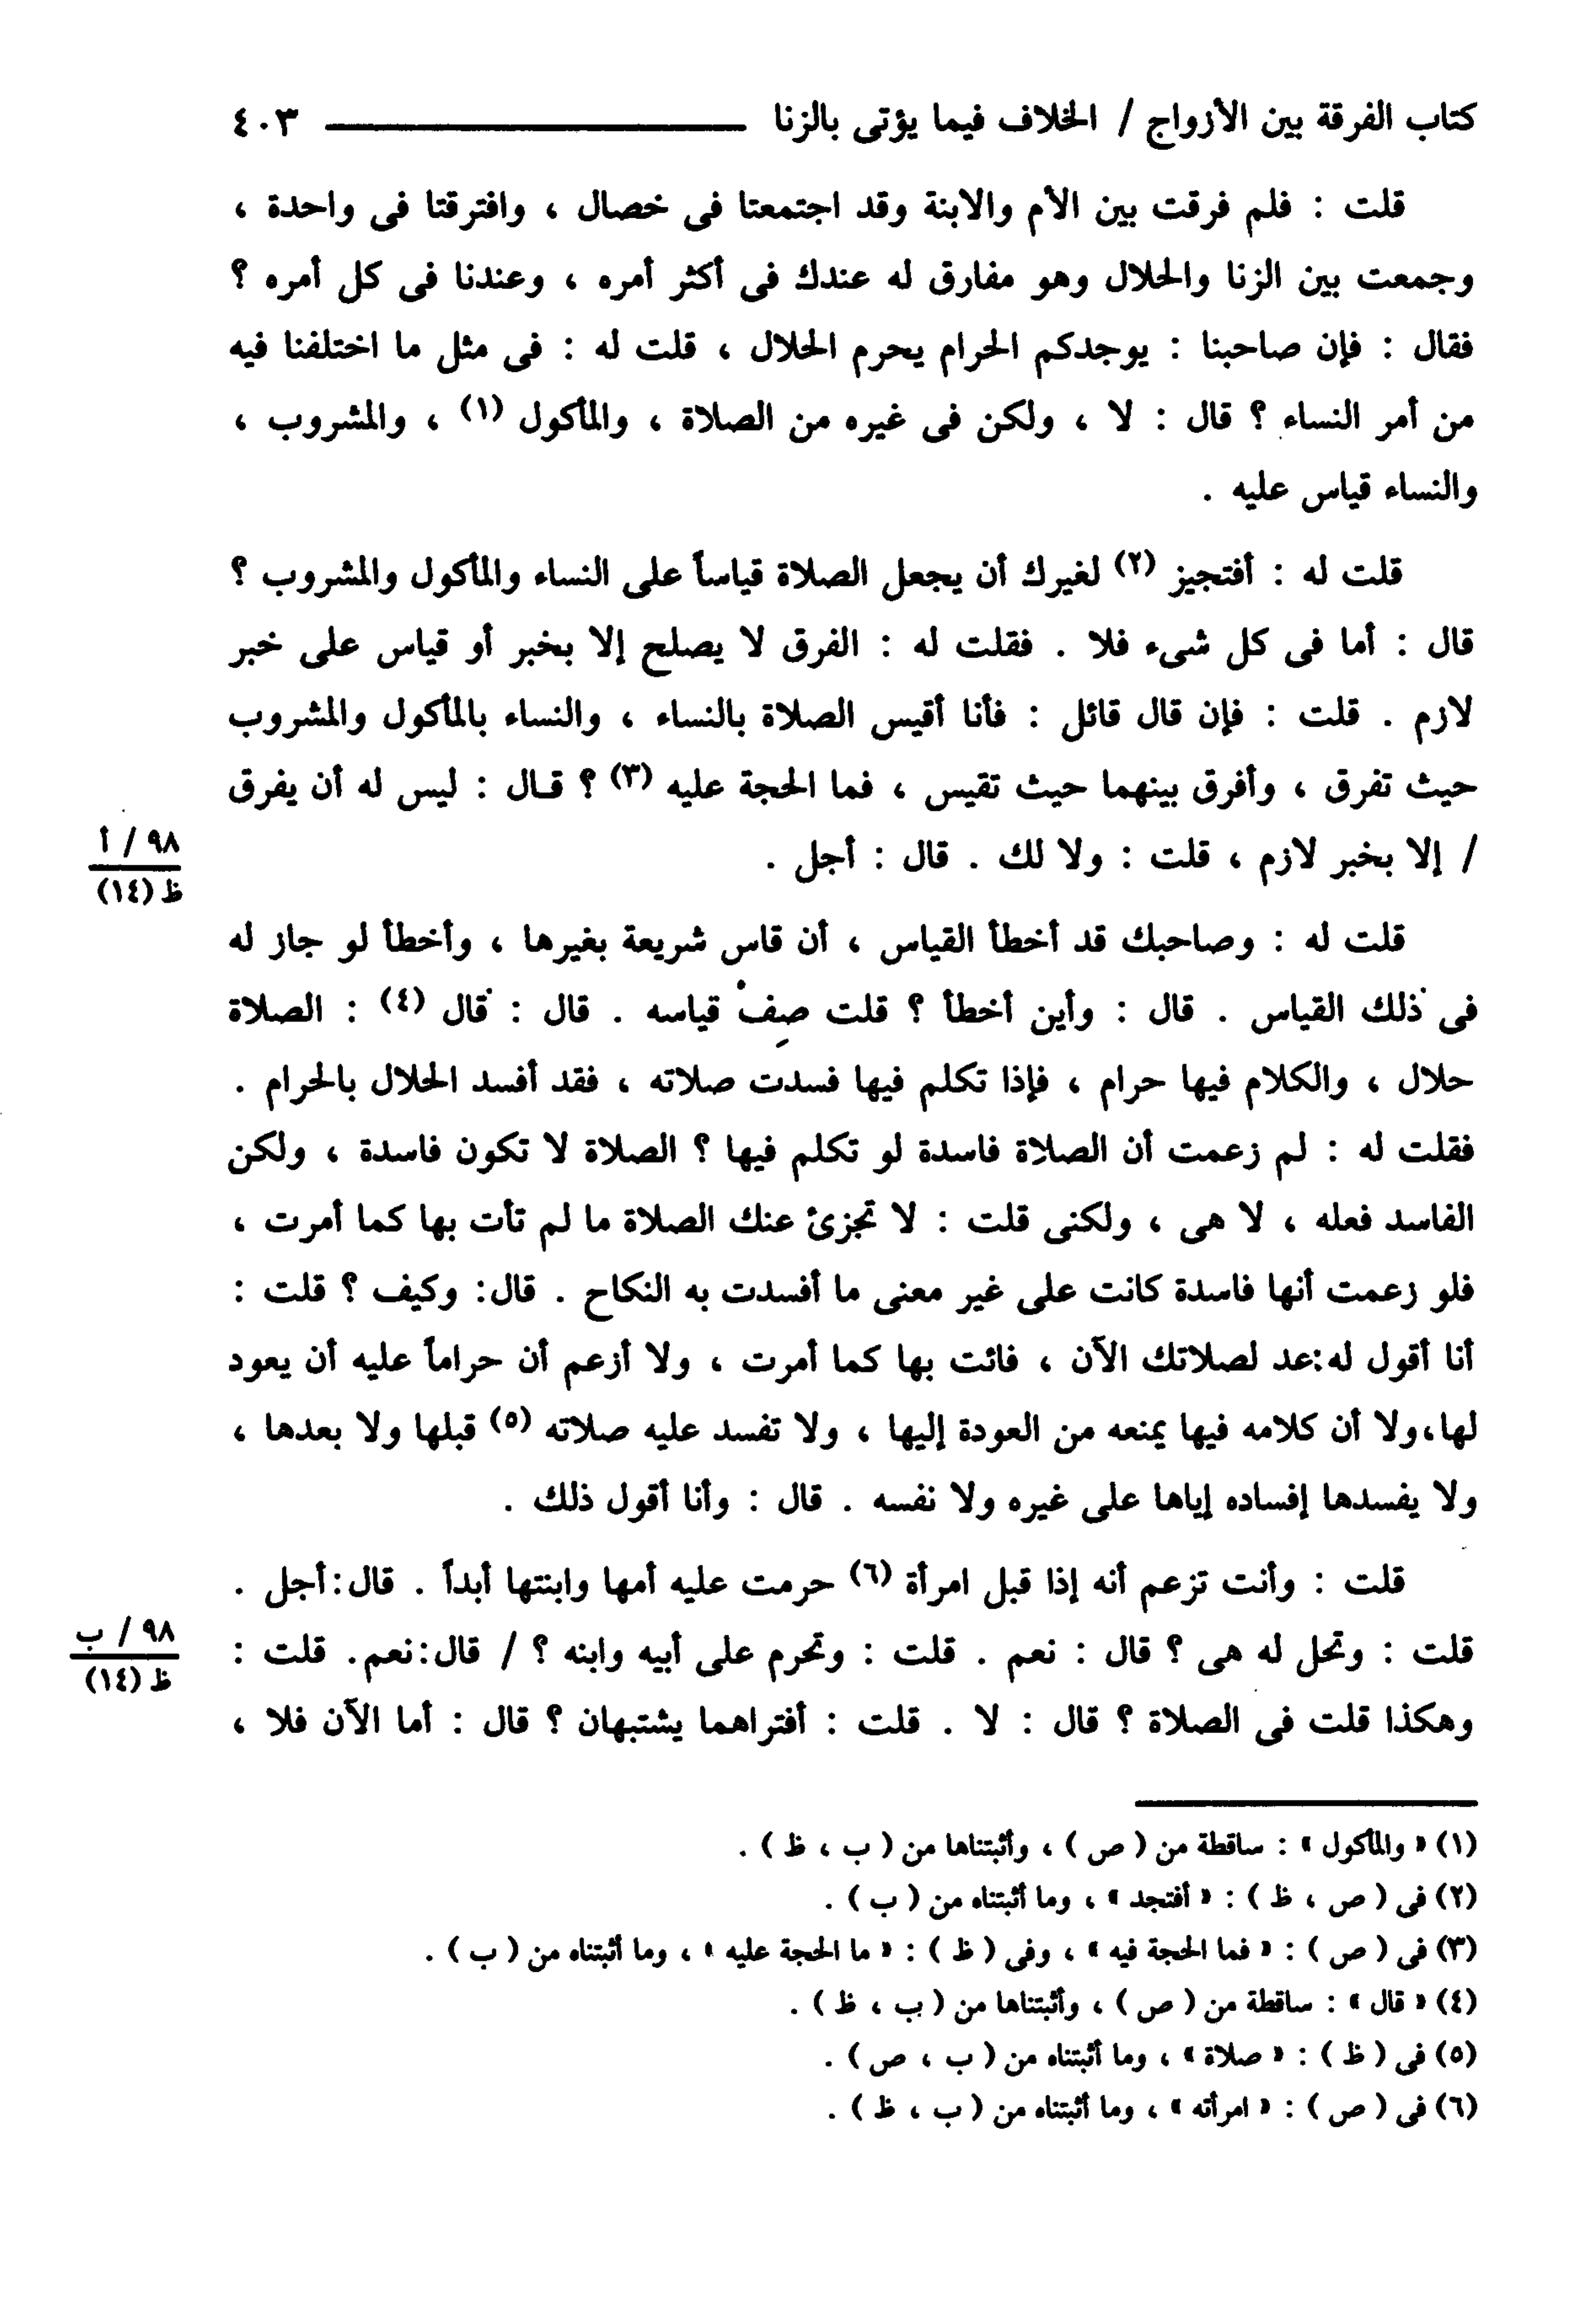 كتاب الفرقة بين الأزواج / الخلاف فيما يؤتى بالزنا ٤٠٣
قلت : فلم فرقت بين الأم والابنة وقد اجتمعتا فى خصال ، وافترقتا فى واحدة ،
وجمعت بين الزنا والحلال وهو مفارق له عندك فى أكثر أمره ، وعندنا فى كل أمره ؟
فقال : فإن صاحبنا : يوجدكم الحرام يحرم الحلال ، قلت له : فى مثل ما اختلفنا فيه
من أمر النساء ؟ قال : لا ، ولكن فى غيره من الصلاة ، والمأكول (١) ، والمشروب ،
والنساء قياس عليه .
قلت له : أفتجيز (٢) لغيرك أن يجعل الصلاة قياساً على النساء والمأكول والمشروب ؟
قال : أما فى كل شىء فلا . فقلت له : الفرق لا يصلح إلا بخبر أو قياس على خبر
لازم . قلت : فإن قال قائل : فأنا أقيس الصلاة بالنساء ، والنساء بالمأكول والمشروب
حيث تفرق ، وأفرق بينهما حيث تقيس ، فما الحجة عليه (٣) ؟ قـال : ليس له أن يفرق
/ إلا بخبر لازم ، قلت : ولا لك . قال : أجل .
٩٨ / أ
ظ (١٤)
قلت له : وصاحبك قد أخطأ القياس ، أن قاس شريعة بغيرها ، وأخطأ لو جاز له
فى ذلك القياس . قال : وأين أخطأ ؟ قلت صِفْ قياسه . قال : قال (٤) : الصلاة
حلال ، والكلام فيها حرام ، فإذا تكلم فيها فسدت صلاته ، فقد أفسد الحلال بالحرام .
فقلت له : لم زعمت أن الصلاة فاسدة لو تكلم فيها ؟ الصلاة لا تكون فاسدة ، ولكن
الفاسد فعله ، لا هى ، ولكنى قلت : لا تجزئ عنك الصلاة ما لم تأت بها كما أمرت ،
فلو زعمت أنها فاسدة كانت على غير معنى ما أفسدت به النكاح . قال: وكيف ؟ قلت :
أنا أقول له:عد لصلاتك الآن ، فائت بها كما أمرت ، ولا أزعم أن حراماً عليه أن يعود
لها،ولا أن كلامه فيها يمنعه من العودة إليها ، ولا تفسد عليه صلاته (٥) قبلها ولا بعدها ،
ولا يفسدها إفساده إياها على غيره ولا نفسه . قال : وأنا أقول ذلك .
قلت : وأنت تزعم أنه إذا قبل امرأة (٦) حرمت عليه أمها وابنتها أبداً . قال:أجل .
قلت : وتحل له هى ؟ قال : نعم . قلت : وتحرم على أبيه وابنه ؟ / قال:نعم. قلت :
٩٨ / ب
ظ (١٤)
وهكذا قلت فى الصلاة ؟ قال : لا . قلت : أفتراهما يشتبهان ؟ قال : أما الآن فلا ،
(١) « والمأكول » : ساقطة من ( ص ) ، وأثبتناها من ( ب ، ظ ) .
(٢) فى ( ص ، ظ ) : « أفتجد » ، وما أثبتناه من ( ب ) .
(٣) فى ( ص ) : « فما الحجة فيه » ، وفى ( ظ ) : « ما الحجة عليه » ، وما أثبتناه من ( ب ) .
(٤) « قال » : ساقطة من ( ص ) ، وأثبتناها من ( ب ، ظ ) .
(٥) فى ( ظ ) : « صلاة » ، وما أثبتناه من ( ب ، ص ) .
(٦) فى ( ص ) : « امرأته » ، وما أثبتناه من ( ب ، ظ ) .